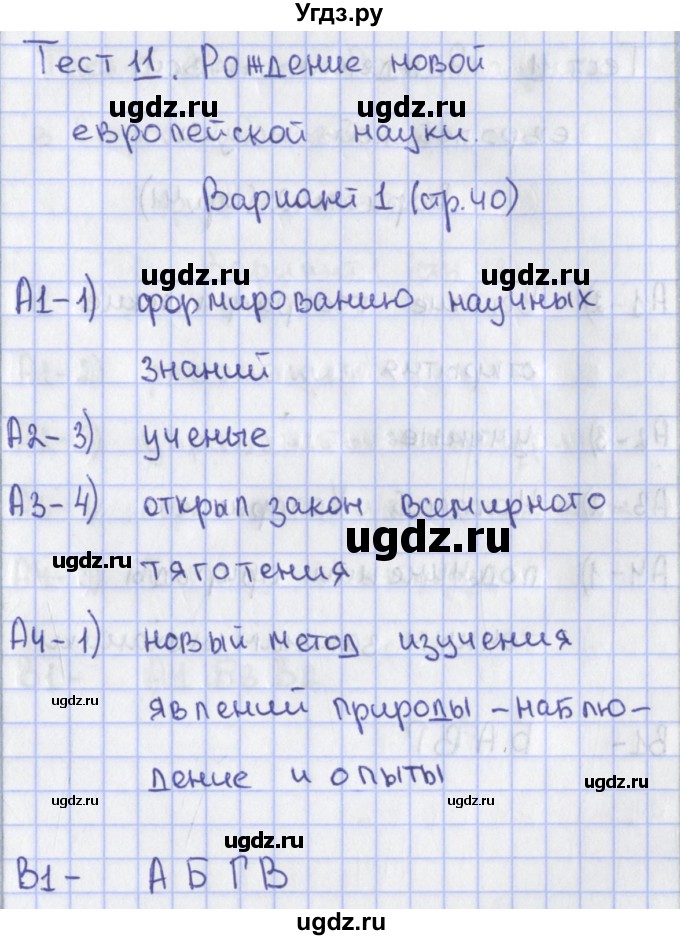 Угдз.ру
Тест 11. Рождение новой
ugdz.ru ugdz.ru
европейской науки.
Вариант 1 (стр.40)
ugdz.ru ugdz.ru
А1-1) формированию научных
знаний
А2-3) ученые
А3-4) открыл закон всемирного
ugdz.ru ugdz.ru
тяготения
А4-1) новый метод изучения
ugdz.ru
явлений природы - наблю-
дение и опыты
ugdz.ru ugdz.ru ugdz.ru
ugdz.ru
В1- А Б Г В
ugdz.ru